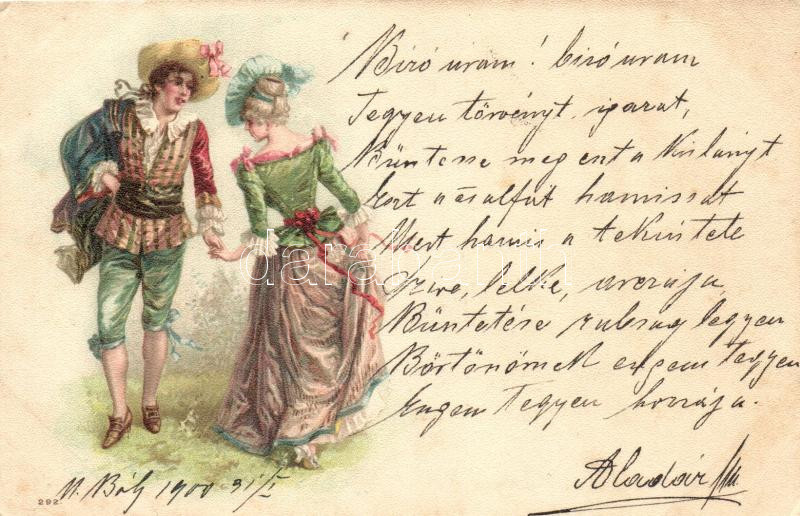 Biró uram! biró uram
Tegyen törvényt, igazat,
Büntesse meg ezt a kis lányt
Ezt a csalfát hamissat
Mert hamis a tekintete
Szive, lelke, orczája,
Büntetése rabság legyen
Börtönörnek engem tegyen
Engem tegyen hozzája.
Aladár
1900 31/I
292.
darabanth